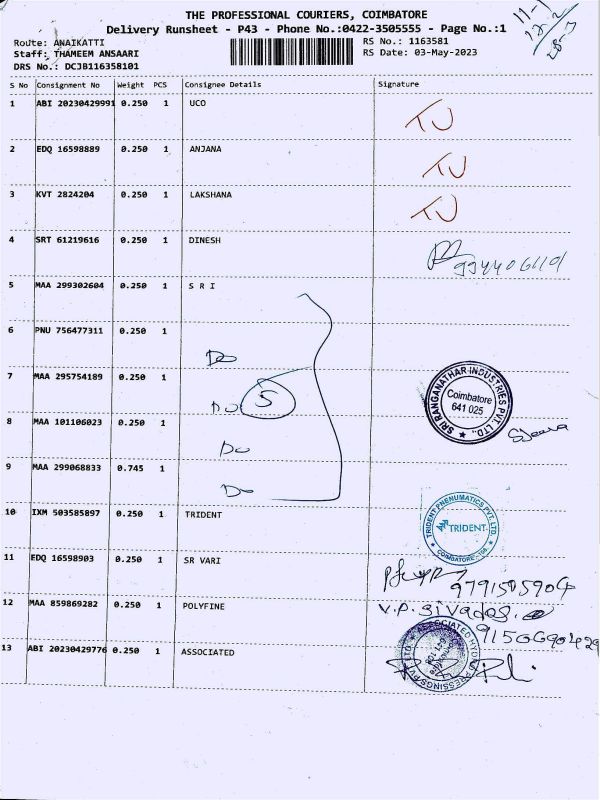 THE PROFESSIONAL COURIERS, COIMBATORE
Delivery Runsheet - P43 - Phone No.:0422-3505555 - Page No.:1
Route: ANAIKATTI RS No.: 1163581
Staff: THAMEEM ANSAARI RS Date: 03-May-2023
DRS No.: DCJB116358101
S No Consignment No Weight PCS Consignee Details Signature
1 ABI 20230429991 0.250 1 UCO TJ
2 EDQ 16598889 0.250 1 ANJANA TJ
3 KVT 2824204 0.250 1 LAKSHANA TJ
4 SRT 61219616 0.250 1 DINESH
5 MAA 299302604 0.250 1 S R I
6 PNU 756477311 0.250 1 Do
7 MAA 295754189 0.250 1 Do 5
SRI RANGANATHAR INDUSTRIES PVT. LTD.
Coimbatore
641 025
8 MAA 101106023 0.250 1 Do
9 MAA 299068833 0.745 1 Do
10 IXM 503585897 0.250 1 TRIDENT
TRIDENT PNEUMATICS PVT. LTD.
TRIDENT
COIMBATORE
11 EDQ 16598903 0.250 1 SR VARI
9791505904
12 MAA 859869282 0.250 1 POLYFINE V.P. Sivadas.
13 ABI 20230429776 0.250 1 ASSOCIATED